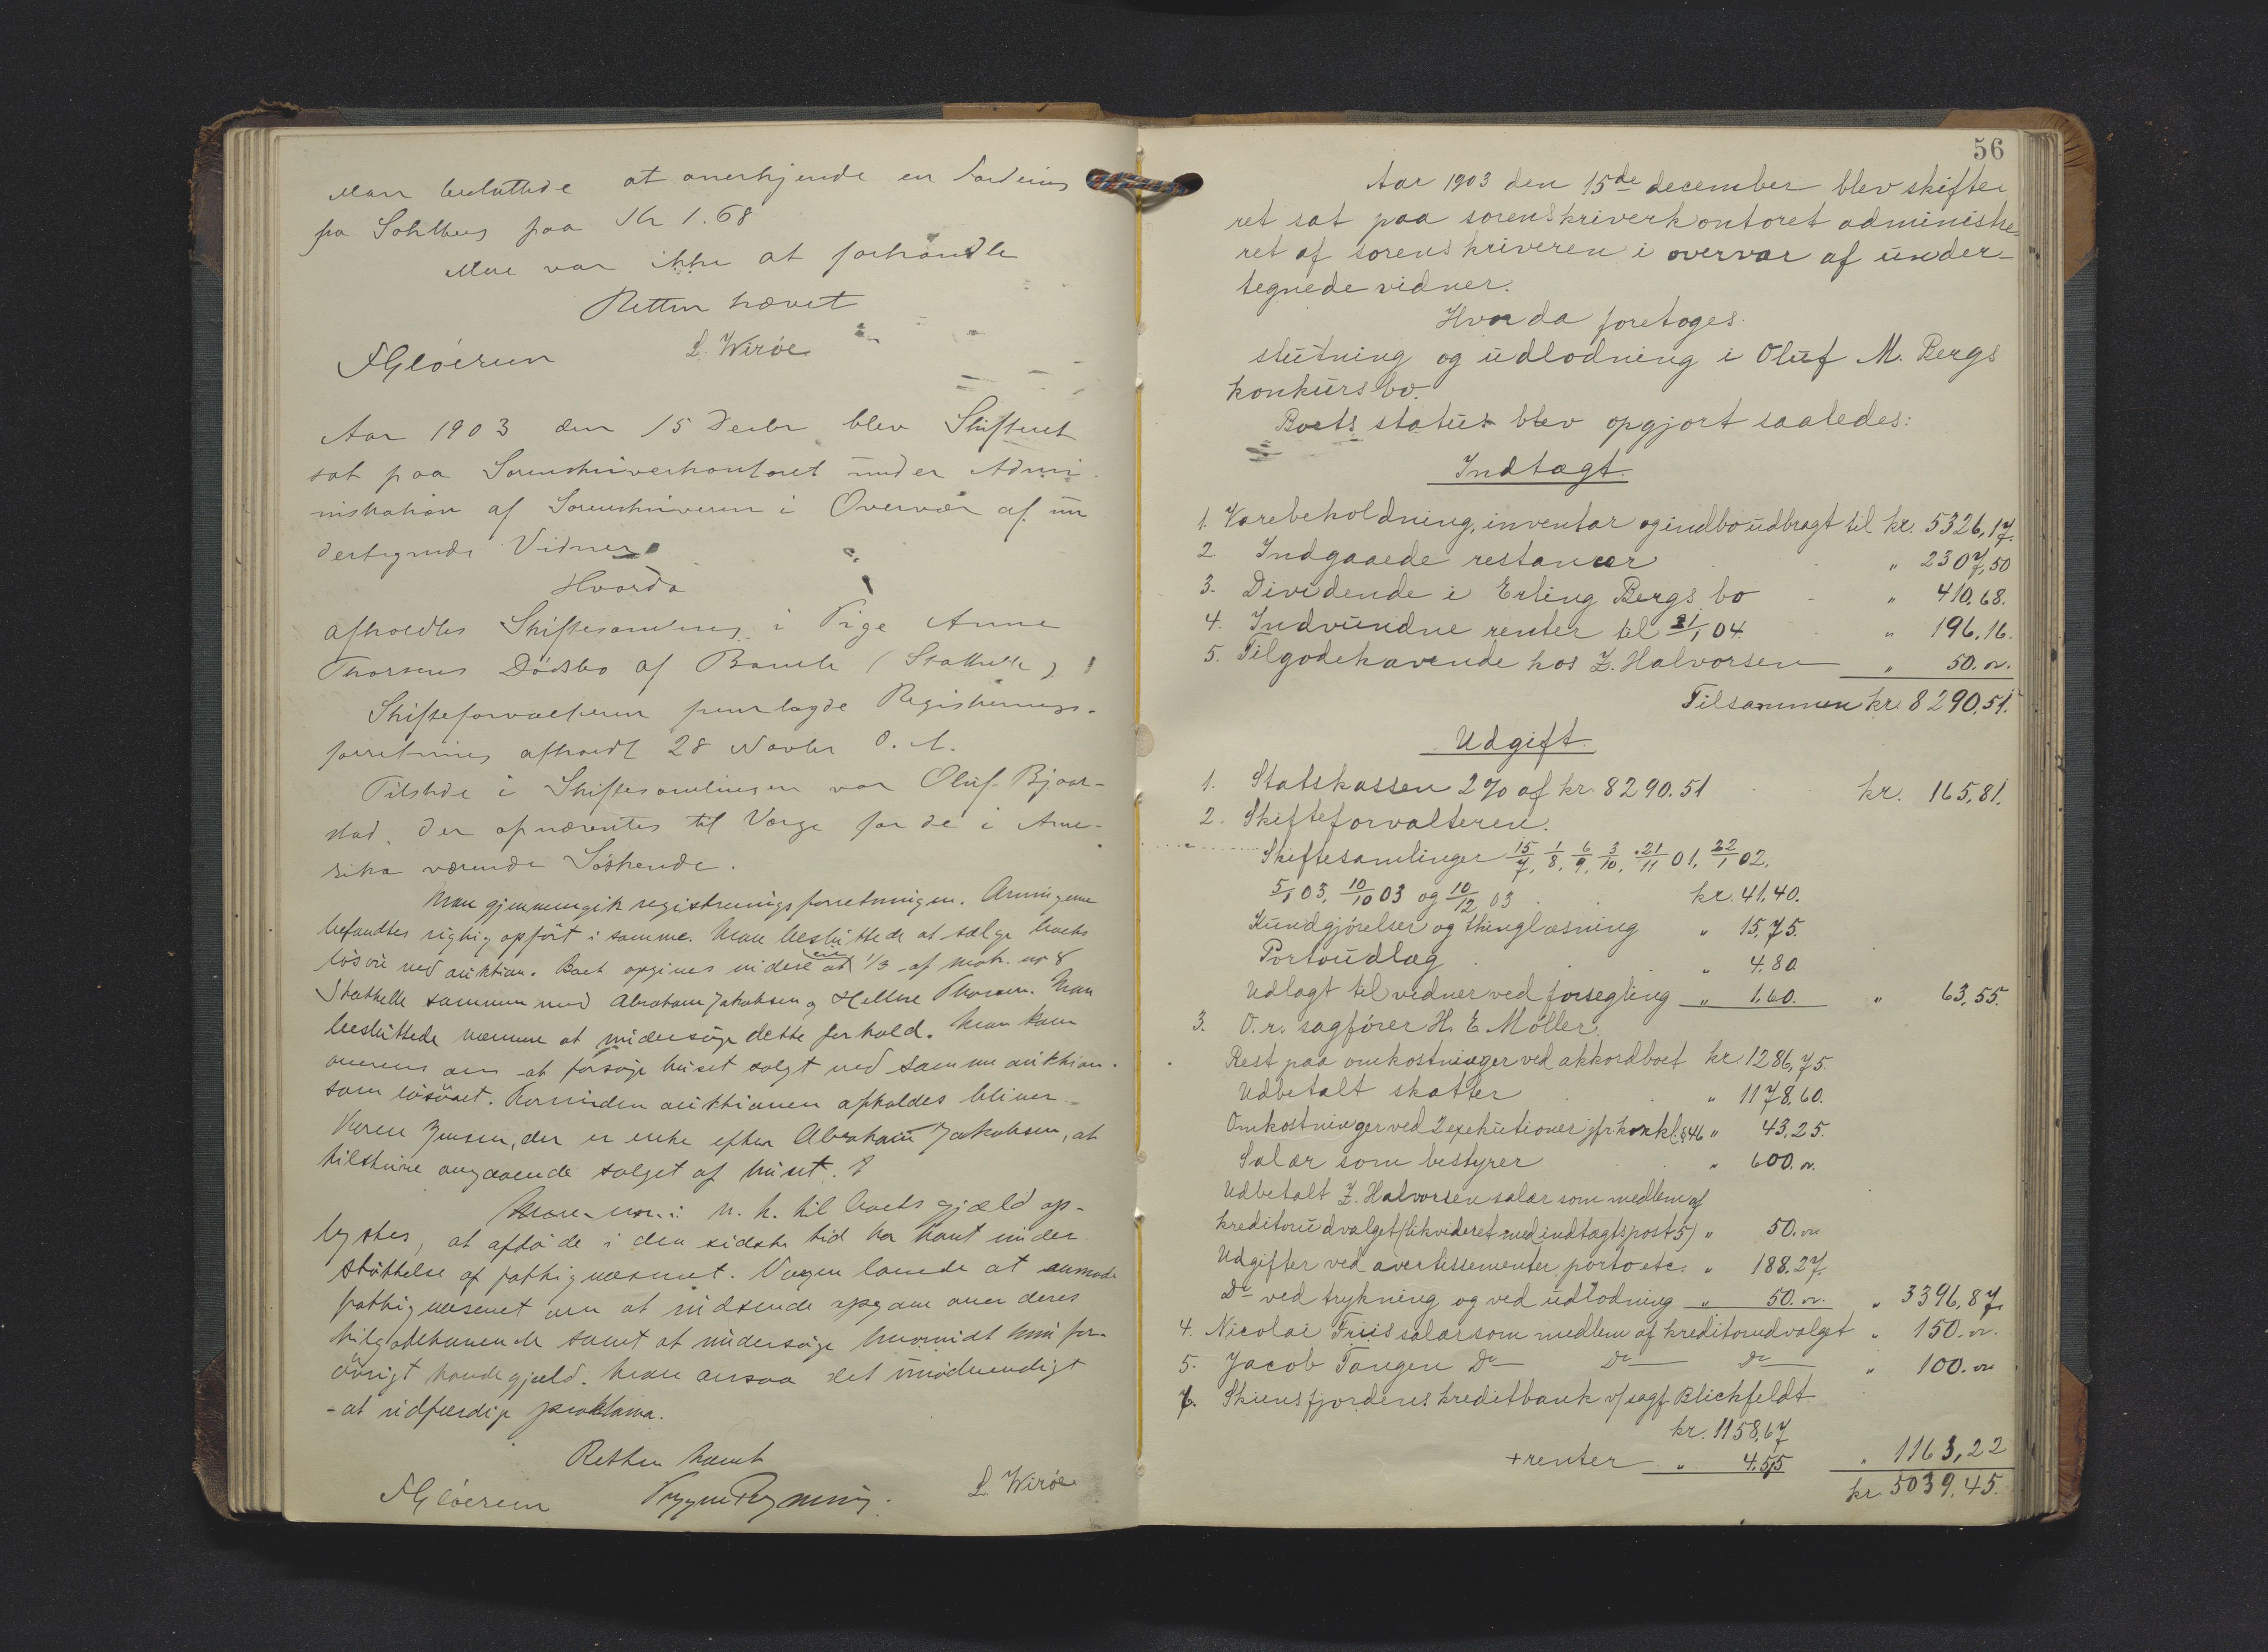 Man besluttede at anerkjende en Fordring
fra Sohlberg paa Kr 1.68
Mere var ikke at forhandle
Retten hævet
L. Wirøe
Aar 1903 den 15 Decbr blev Skifteret
sat paa Sorenskriverkontoret under Admi
nistration af Sorenskriveren i Overvær af un
dertegnede Vidner
Hvorda
afholdtes Skiftesamling i Pige Anne
Thorsens Dödsbo af Bamle (Stathelle)
Skifteforvalteren fremlagde Registrerings-
forretning afholdt 28 Novbr d. A.
Tilstede i Skiftesamlingen var Oluf Bjaar-
stad, der opnævntes til Værge for de i Ame-
rika værende Söskende.
Man gjennemgik registreringsforretningen. Arvingerne
befandtes rigtig opført i samme. Man besluttede at sælge boets
løsøre ved auktion. Boet opgives videre at eie 1/3 af matr. nr 8
Stathelle sammen med Abraham Jakobsen og Hellene Thorsen. Man
besluttede nærmere at undersøge dette forhold. Man kom
overens om at forsøge huset solgt ved samme auktion
som løsøret. Forinden auktionen afholdes bliver
Karen Jensen, der er enke efter Abraham Jakobsen, at
tilskrive angaaende salget af huset.
m. h. til boets gjæld op-
lystes, at afdøde i den sidste tid har havt under
støttelse af fattigvæsenet. Værgen lovede at anmode
fattigvæsenet om at indsende opgave over deres
tilgodehavende samt at undersøge hvorvidt hun for-
övrigt havde gjæld. Man ansaa det unødvendigt
at udfærdige proklama.
Retten hævet
L. Wirøe
56
Aar 1903 den 15de december blev skifte
ret sat paa sorenskriverkontoret administre-
ret af sorenskriveren i overvær af under-
tegnede vidner.
Hvorda foretoges
slutning og udlodning i Oluf M. Bergs
konkursbo.
Boets status blev opgjort saaledes:
Indtægt.
1. Varebeholdning, inventar og indbo udbragt til kr. 5326,17.
2. Indgaaede restancer " 2307,50
3. Dividende i Erling Bergs bo " 410,68.
4. Indvundne renter til 21/1 04. " 196,16.
5. Tilgodehavende hos Z. Halvorsen " 50. „
Tilsammen kr. 8290,51.
Udgift.
1. Statskassen 2 % af kr. 8290.51 kr. 165,81.
2. Skifteforvalteren.
Skiftesamlinger 15/7, 1/8, 6/9, 3/10, 21/11 01, 22/1 02.
5/1 03, 10/10 03 og 10/12 03 kr. 41,40.
Kundgjørelser og thinglæsning " 15,75.
Portoudlæg " 4,80
Udlagt til vidner ved forsegling " 1,60. " 63,55.
3. O.r. sagfører H. E. Møller.
Rest paa omkostninger ved akkordboet kr 1286,75.
Udbetalt skatter " 1178,60.
Omkostninger ved 2 exekutioner jfr. konkl. § 46 " 43,25.
Salær som bestyrer " 600. „
Udbetalt Z. Halvorsen salær som medlem af
kreditorudvalget (likvideret med indtægtspost 5) " 50. „
Udgifter ved avertissementer porto etc. " 188.27.
Do ved trykning og ved udlodning " 50. „ " 3396,87.
4. Nicolai Friis salær som medlem af kreditorudvalget " 150. „
5. Jacob Tangen Do Do Do " 100. „
6. Skiensfjordens kreditbank v/ sagf. Blichfeldt
kr. 1158,67
+ renter " 4,55 " 1163,22
kr 5039,45.